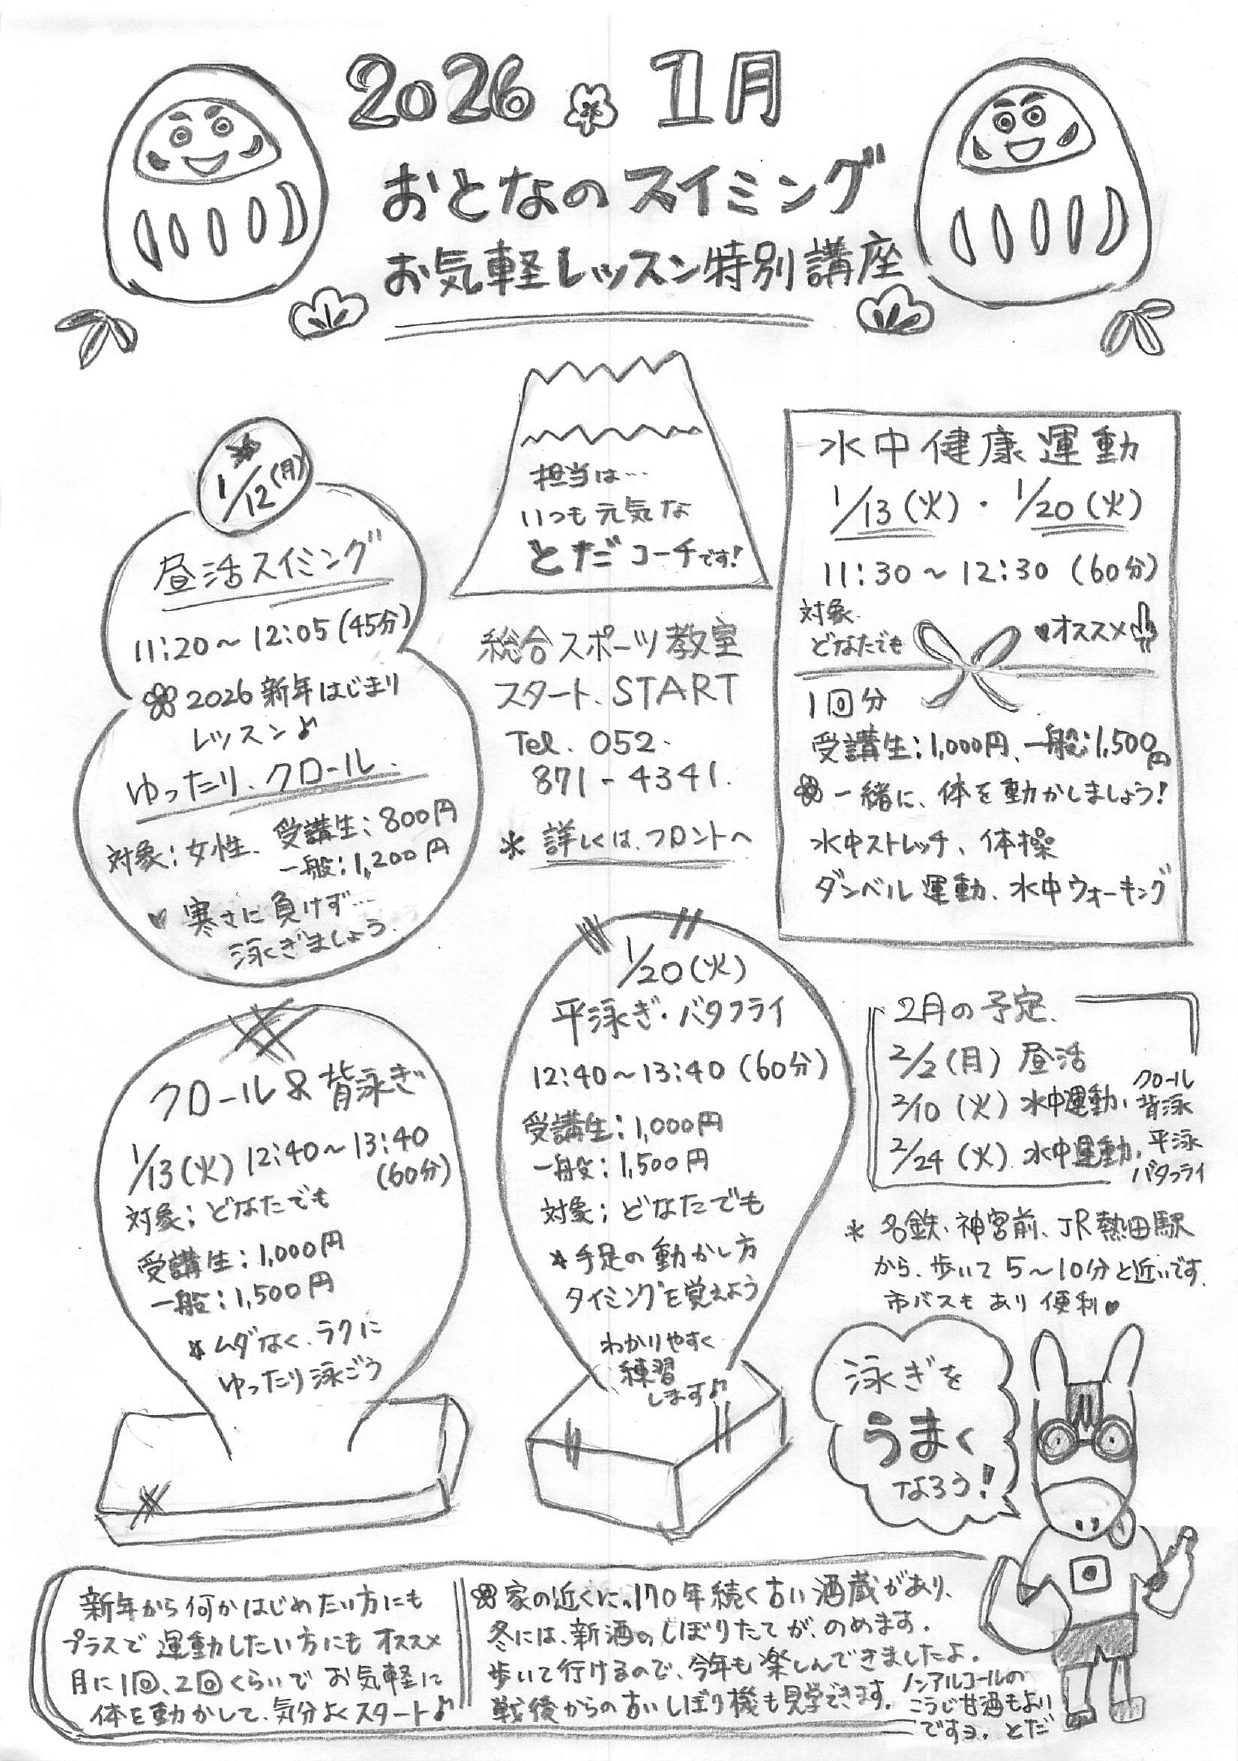 2026 1月
おとなのスイミング
お気軽レッスン特別講座
1/12(月)
昼活スイミング
11:20～12:05(45分)
2026新年はじまり
レッスン♪
ゆったり、クロール.
対象:女性、受講生:800円
一般:1,200円
♥寒さに負けず…
泳ぎましょう.
担当は…
いつも元気な
とだコーチです!
総合スポーツ教室
スタート、START
Tel. 052.
871-4341.
＊詳しくは、フロントへ
水中健康運動
1/13(火)・1/20(火)
11:30～12:30(60分)
対象
どなたでも
♥オススメ
1回分
受講生:1,000円、一般:1,500円
一緒に、体を動かしましょう!
水中ストレッチ、体操
ダンベル運動、水中ウォーキング
クロール&背泳ぎ
1/13(火)12:40～13:40
(60分)
対象:どなたでも
受講生:1,000円
一般:1,500円
＊ムダなく、ラクに
ゆったり泳ごう
1/20(火)
平泳ぎ・バタフライ
12:40～13:40(60分)
受講生:1,000円
一般:1,500円
対象:どなたでも
＊手足の動かし方
タイミングを覚えよう
わかりやすく
練習
します♪
2月の予定.
2/2(月)昼活
2/10(火)水中運動、クロール
背泳
2/24(火)水中運動、平泳
バタフライ
＊名鉄・神宮前、JR熱田駅
から、歩いて5～10分と近いです.
市バスもあり便利♥
泳ぎを
うまく
なろう!
新年から何かはじめたい方にも
プラスで運動したい方にもオススメ
月に1回、2回くらいでお気軽に
体を動かして、気分よくスタート♪
家の近くに、170年続く古い酒蔵があり、
冬には、新酒のしぼりたてが、のめます.
歩いて行けるので、今年も楽しんできましたよ.
戦後からの古いしぼり機も見学できます.
ノンアルコールの
こうじ甘酒もよい
ですョ. とだ